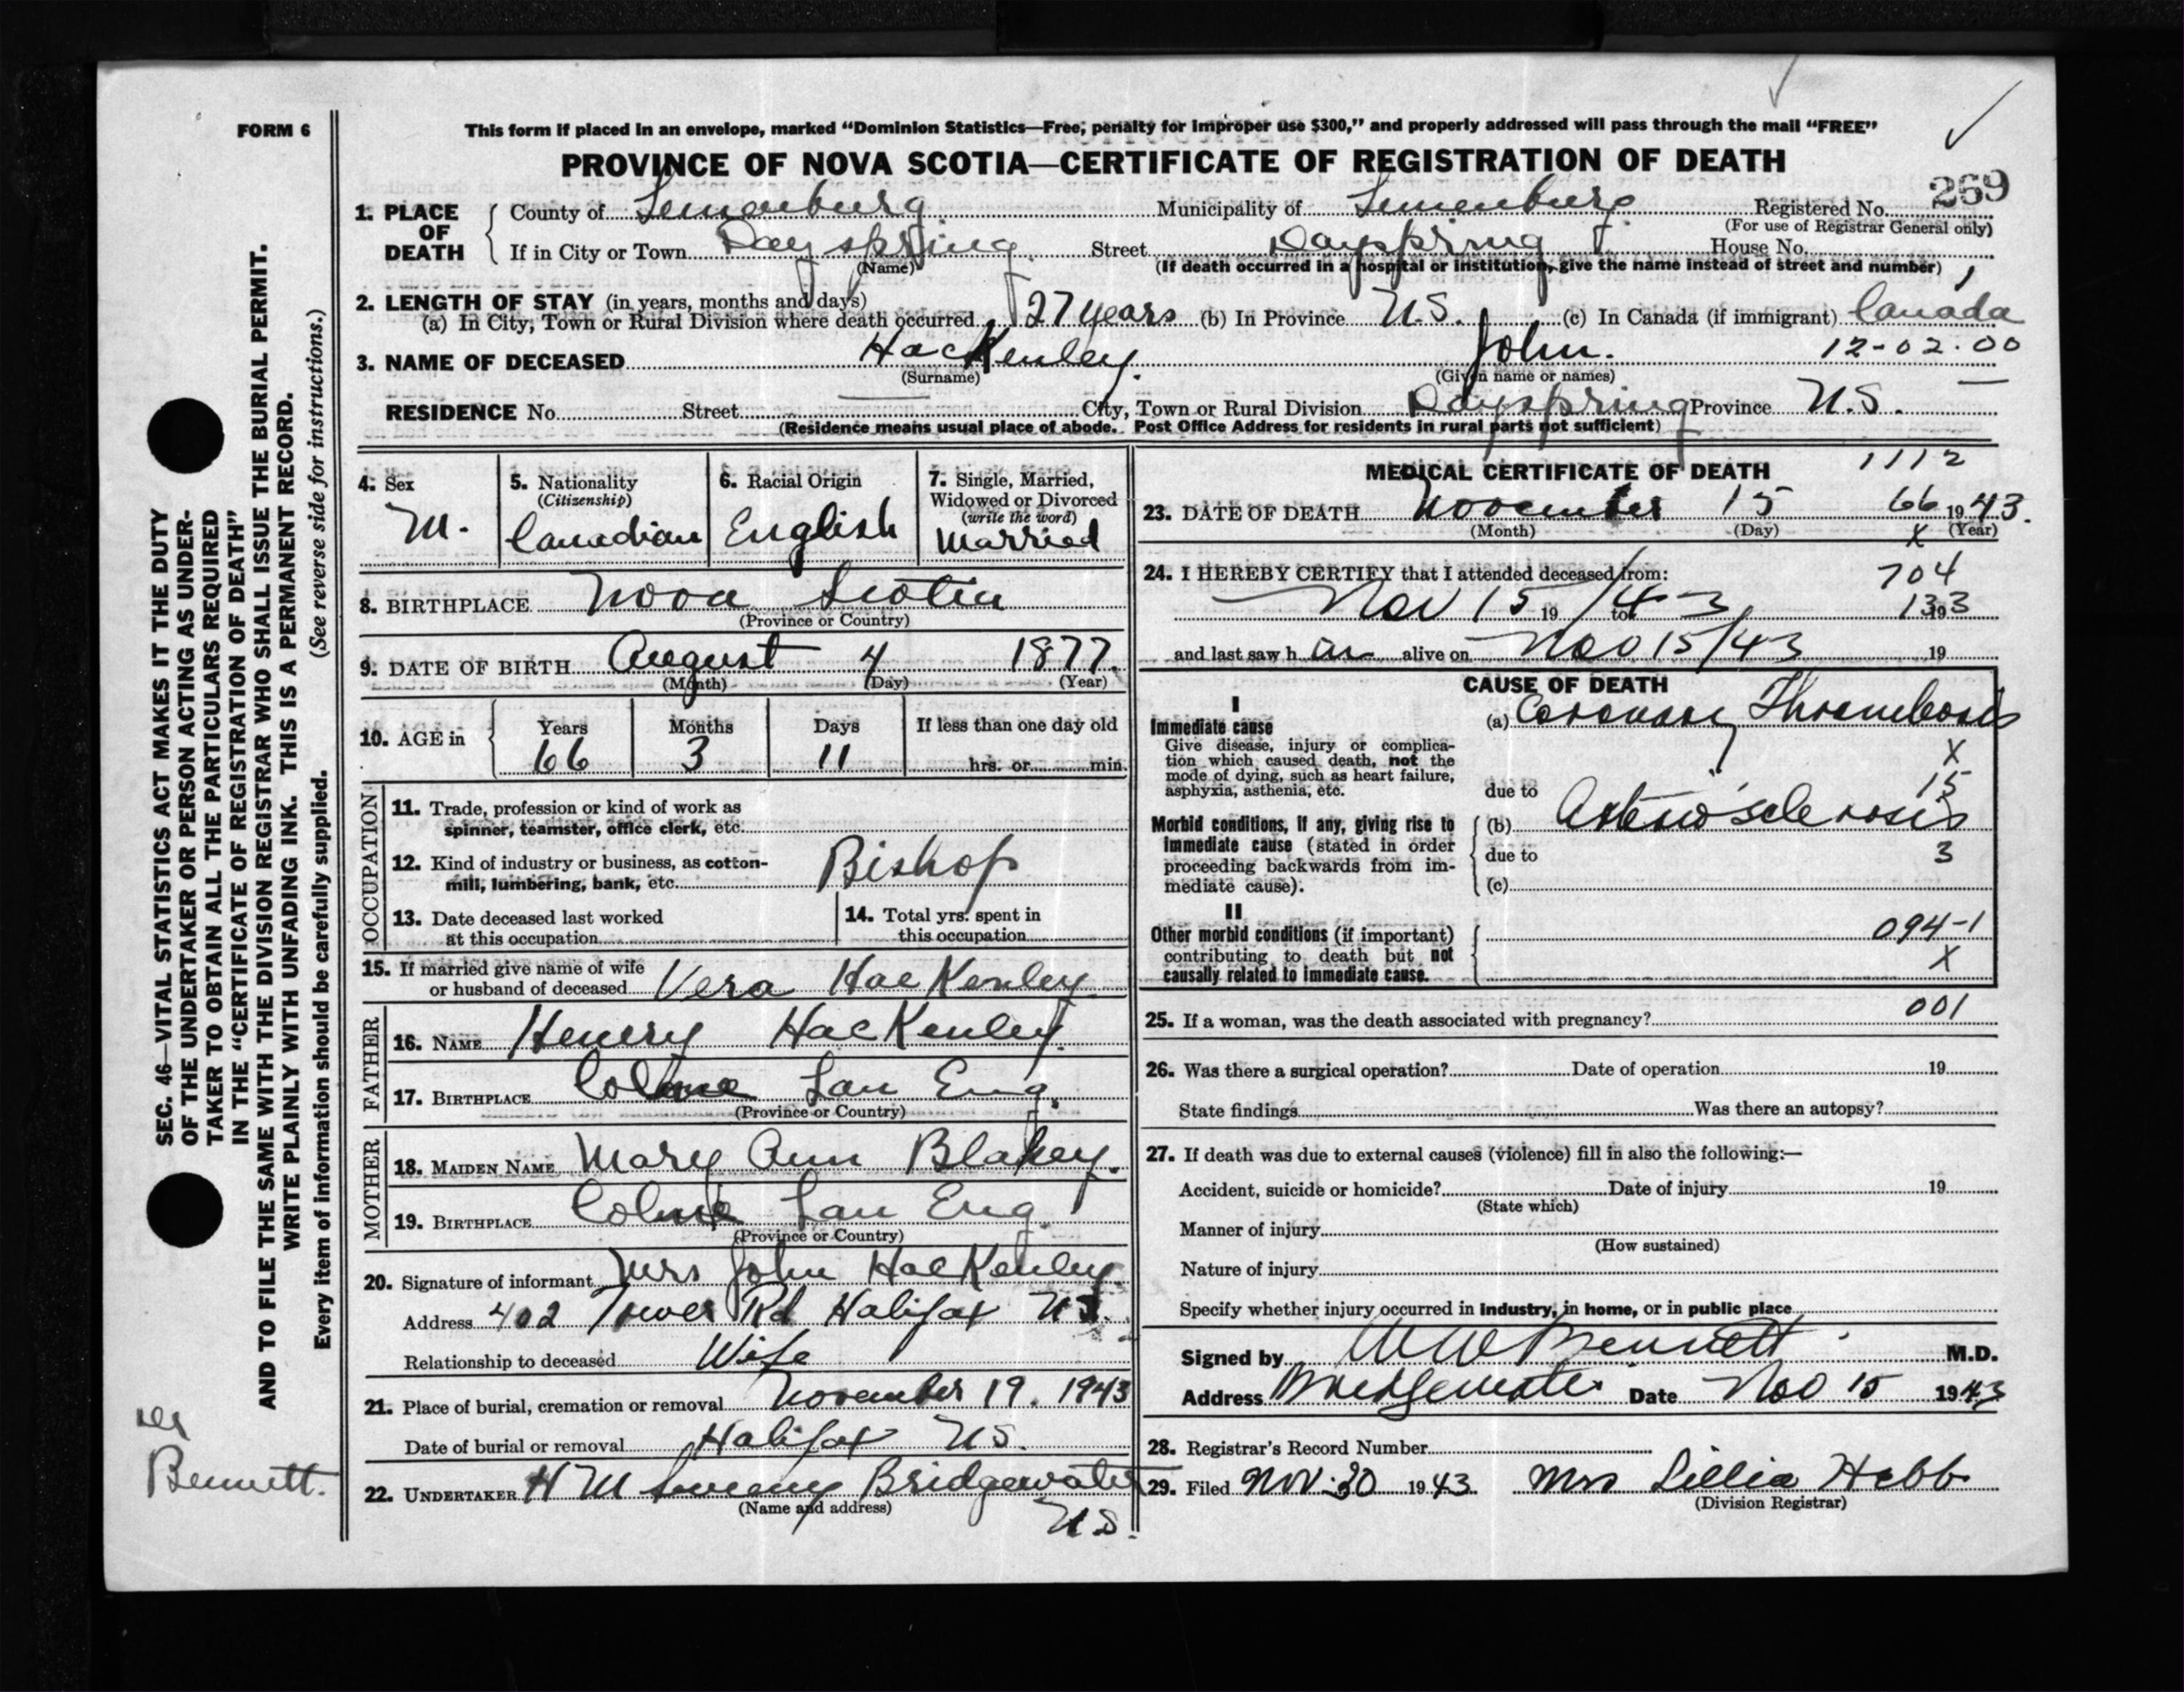 FORM 6
This form if placed in an envelope, marked "Dominion Statistics—Free, penalty for improper use $300," and properly addressed will pass through the mail "FREE"
PROVINCE OF NOVA SCOTIA—CERTIFICATE OF REGISTRATION OF DEATH
269
1. PLACE OF DEATH County of Lunenburg Municipality of Lunenburg Registered No.
(For use of Registrar General only)
If in City or Town Dayspring Street Dayspring House No.
(Name) (If death occurred in a hospital or institution, give the name instead of street and number)
2. LENGTH OF STAY (in years, months and days)
(a) In City, Town or Rural Division where death occurred 27 years (b) In Province N.S. (c) In Canada (if immigrant) Canada
3. NAME OF DECEASED HacKenley John. 12-02-00
(Surname) (Given name or names)
RESIDENCE No. Street City, Town or Rural Division Dayspring Province N.S.
(Residence means usual place of abode. Post Office Address for residents in rural parts not sufficient)
4. Sex 5. Nationality (Citizenship) 6. Racial Origin 7. Single, Married, Widowed or Divorced (write the word)
M. Canadian English Married
8. BIRTHPLACE Nova Scotia
(Province or Country)
9. DATE OF BIRTH August 4 1877.
(Month) (Day) (Year)
10. AGE in Years Months Days If less than one day old
66 3 11 hrs. or min.
OCCUPATION
11. Trade, profession or kind of work as
spinner, teamster, office clerk, etc.
12. Kind of industry or business, as cotton-
mill, lumbering, bank, etc. Bishop
13. Date deceased last worked 14. Total yrs. spent in
at this occupation this occupation
15. If married give name of wife
or husband of deceased Vera HacKenley
FATHER
16. NAME Henery HacKenley.
17. BIRTHPLACE Lan Eng.
(Province or Country)
MOTHER
18. MAIDEN NAME Mary Ann Blakey.
19. BIRTHPLACE Lan Eng.
(Province or Country)
20. Signature of informant Mrs John HacKenley.
Address 402 Tower Rd Halifax N.S.
Relationship to deceased Wife
21. Place of burial, cremation or removal November 19. 1943
Date of burial or removal Halifax N.S.
22. UNDERTAKER H M Bridgewater
(Name and address) N.S.
MEDICAL CERTIFICATE OF DEATH 1112
23. DATE OF DEATH November 15 66 1943.
(Month) (Day) X (Year)
24. I HEREBY CERTIFY that I attended deceased from: 704
Nov 15 19 /43 to 1933
and last saw h alive on Nov 15/43 19
CAUSE OF DEATH
I
Immediate cause (a) Coronary Thrombosis
Give disease, injury or complica-
tion which caused death, not the
mode of dying, such as heart failure,
asphyxia, asthenia, etc.
X
15
due to
Morbid conditions, if any, giving rise to
immediate cause (stated in order
proceeding backwards from im-
mediate cause).
(b) Arteriosclerosis
due to 3
(c)
II
Other morbid conditions (if important)
contributing to death but not
causally related to immediate cause.
094-1
X
001
25. If a woman, was the death associated with pregnancy?
26. Was there a surgical operation? Date of operation 19
State findings Was there an autopsy?
27. If death was due to external causes (violence) fill in also the following:—
Accident, suicide or homicide? Date of injury 19
(State which)
Manner of injury
(How sustained)
Nature of injury
Specify whether injury occurred in industry, in home, or in public place
Signed by W W Bennett M.D.
Address Bridgewater Date Nov 15 1943
28. Registrar's Record Number
29. Filed Nov. 30 1943. Mrs Lillia Hebb
(Division Registrar)
SEC. 46—VITAL STATISTICS ACT MAKES IT THE DUTY
OF THE UNDERTAKER OR PERSON ACTING AS UNDER-
TAKER TO OBTAIN ALL THE PARTICULARS REQUIRED
IN THE "CERTIFICATE OF REGISTRATION OF DEATH"
AND TO FILE THE SAME WITH THE DIVISION REGISTRAR WHO SHALL ISSUE THE BURIAL PERMIT.
WRITE PLAINLY WITH UNFADING INK. THIS IS A PERMANENT RECORD.
Every item of information should be carefully supplied. (See reverse side for instructions.)
Bennett.